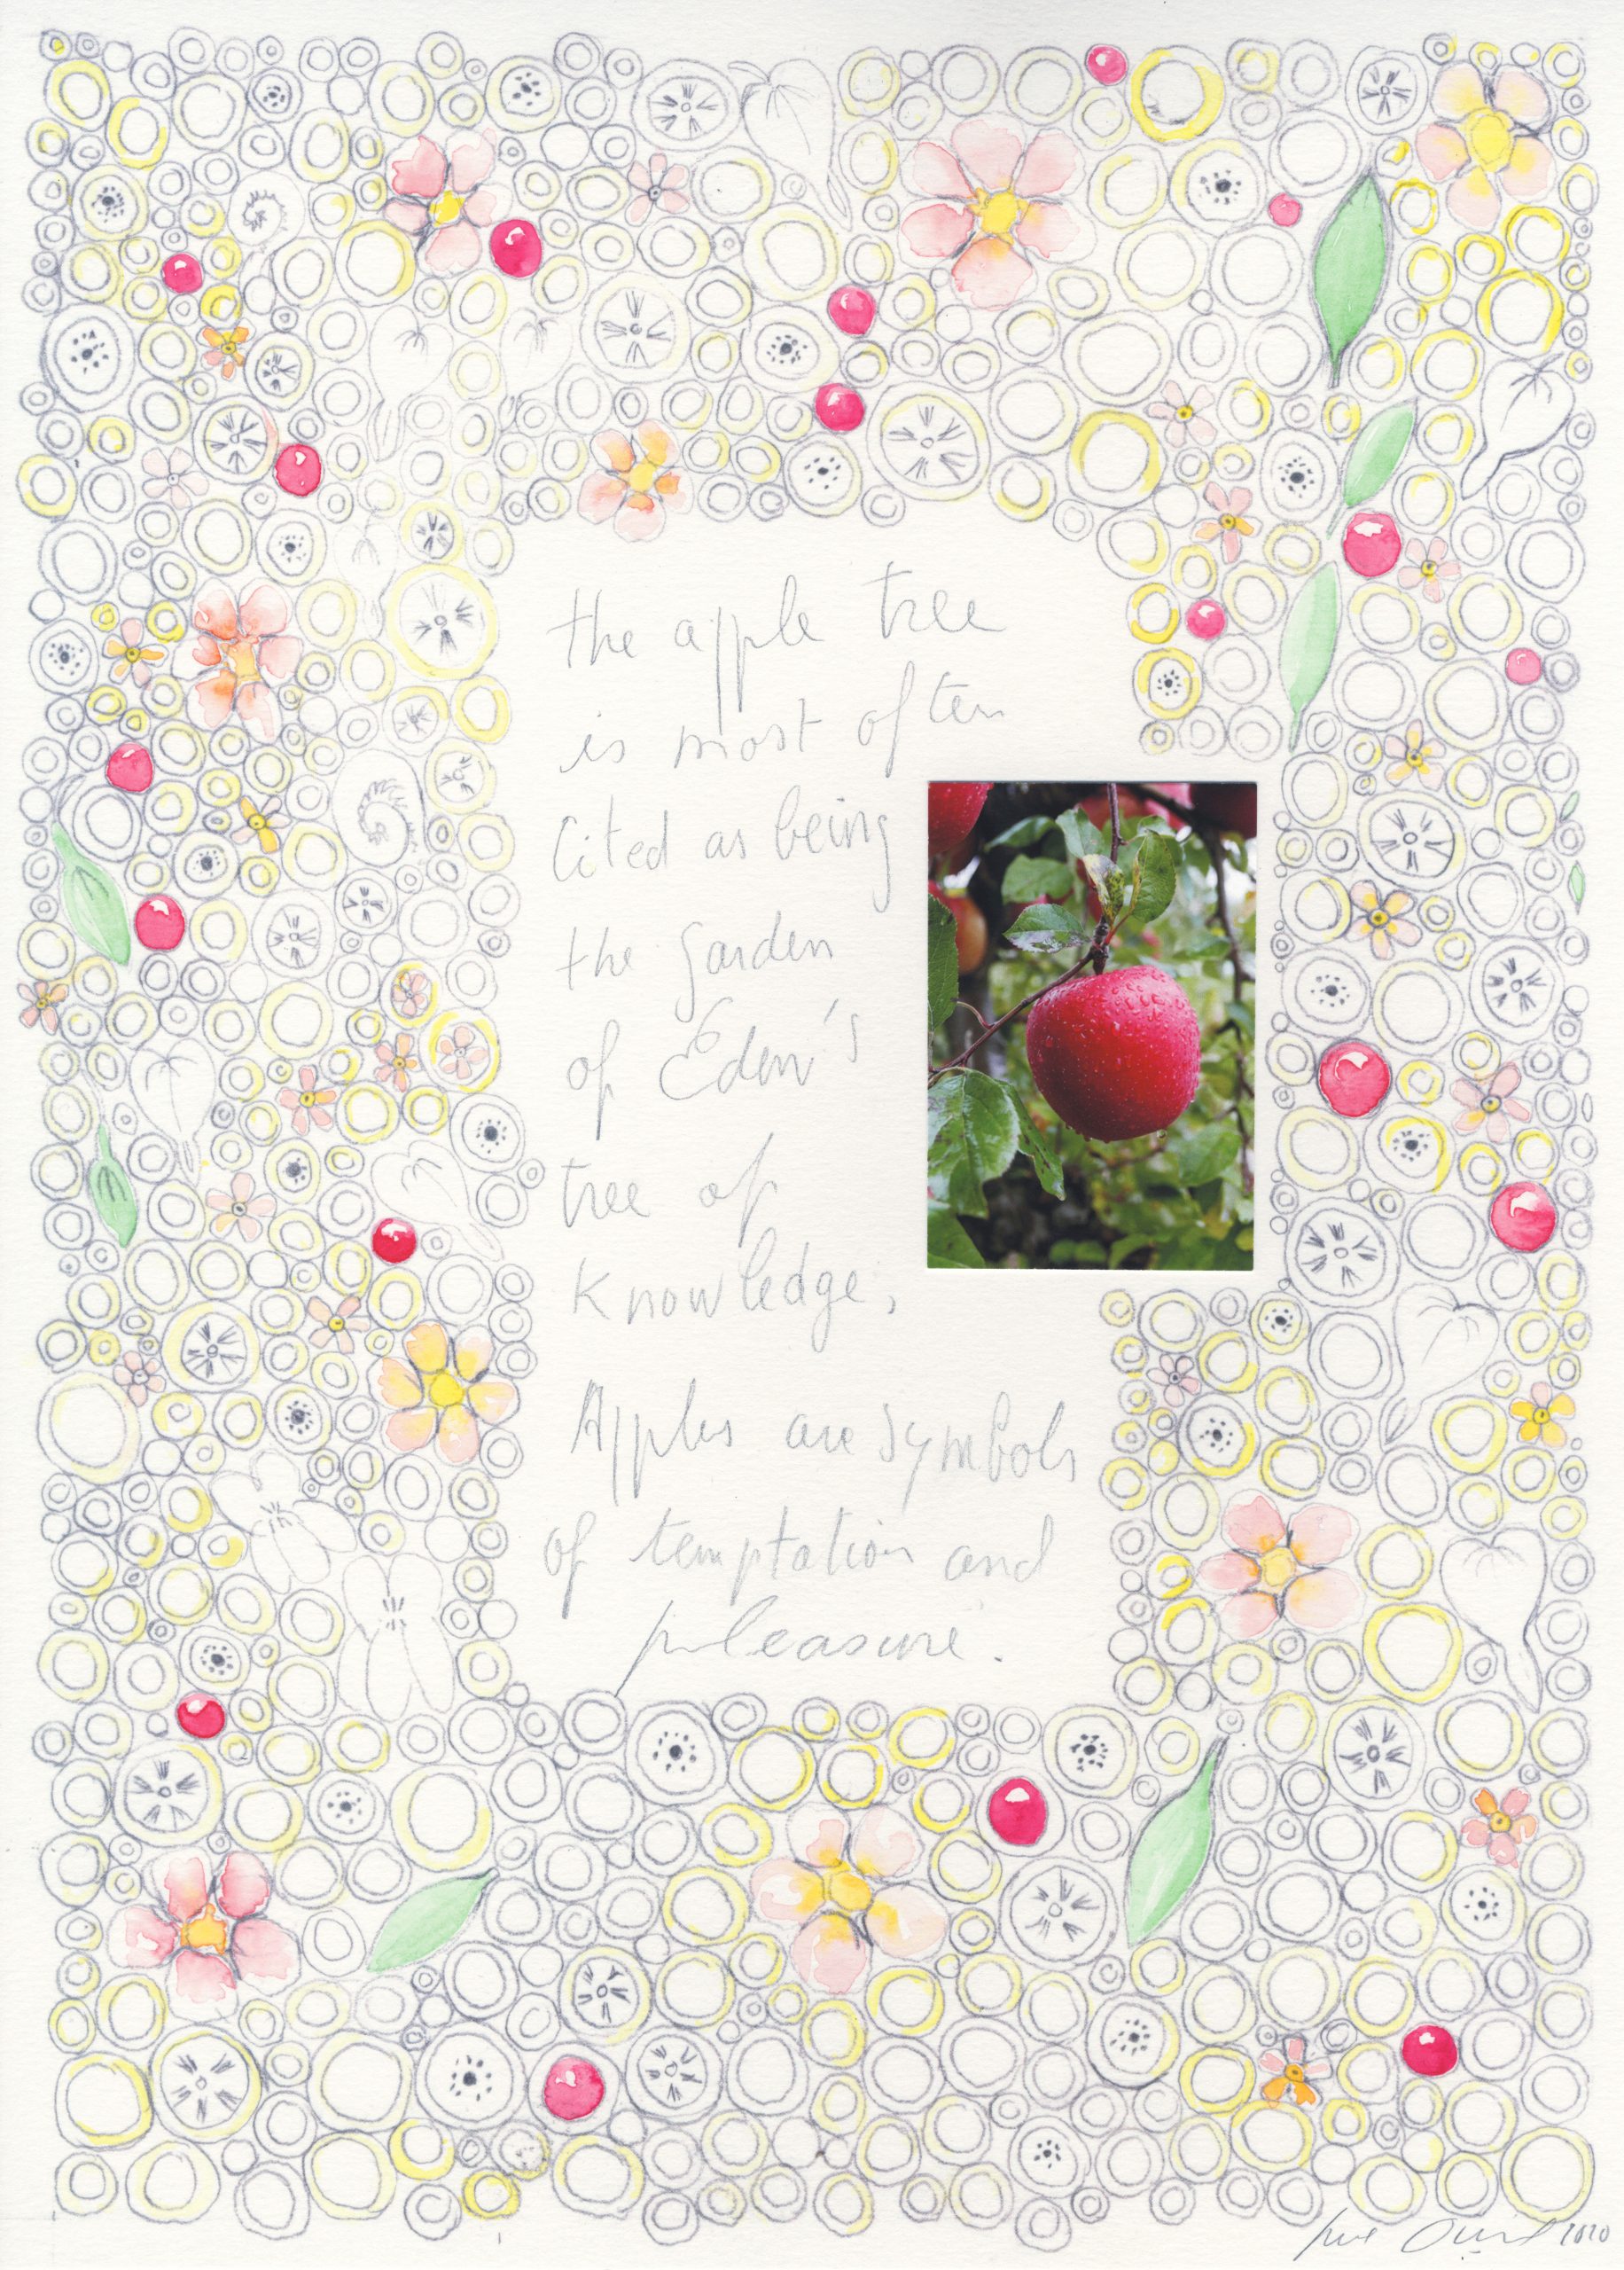 the apple tree
is most often
Cited as being
the garden
of Eden's
tree of
Knowledge,
Apples are symbols
of temptation and
pleasure.
2020